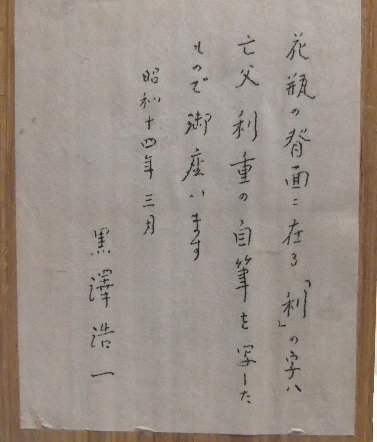 花瓶の背面ニ在る「利」の字ハ
亡父利重の自筆を写した
もので御座います
昭和十四年三月
黒澤浩一